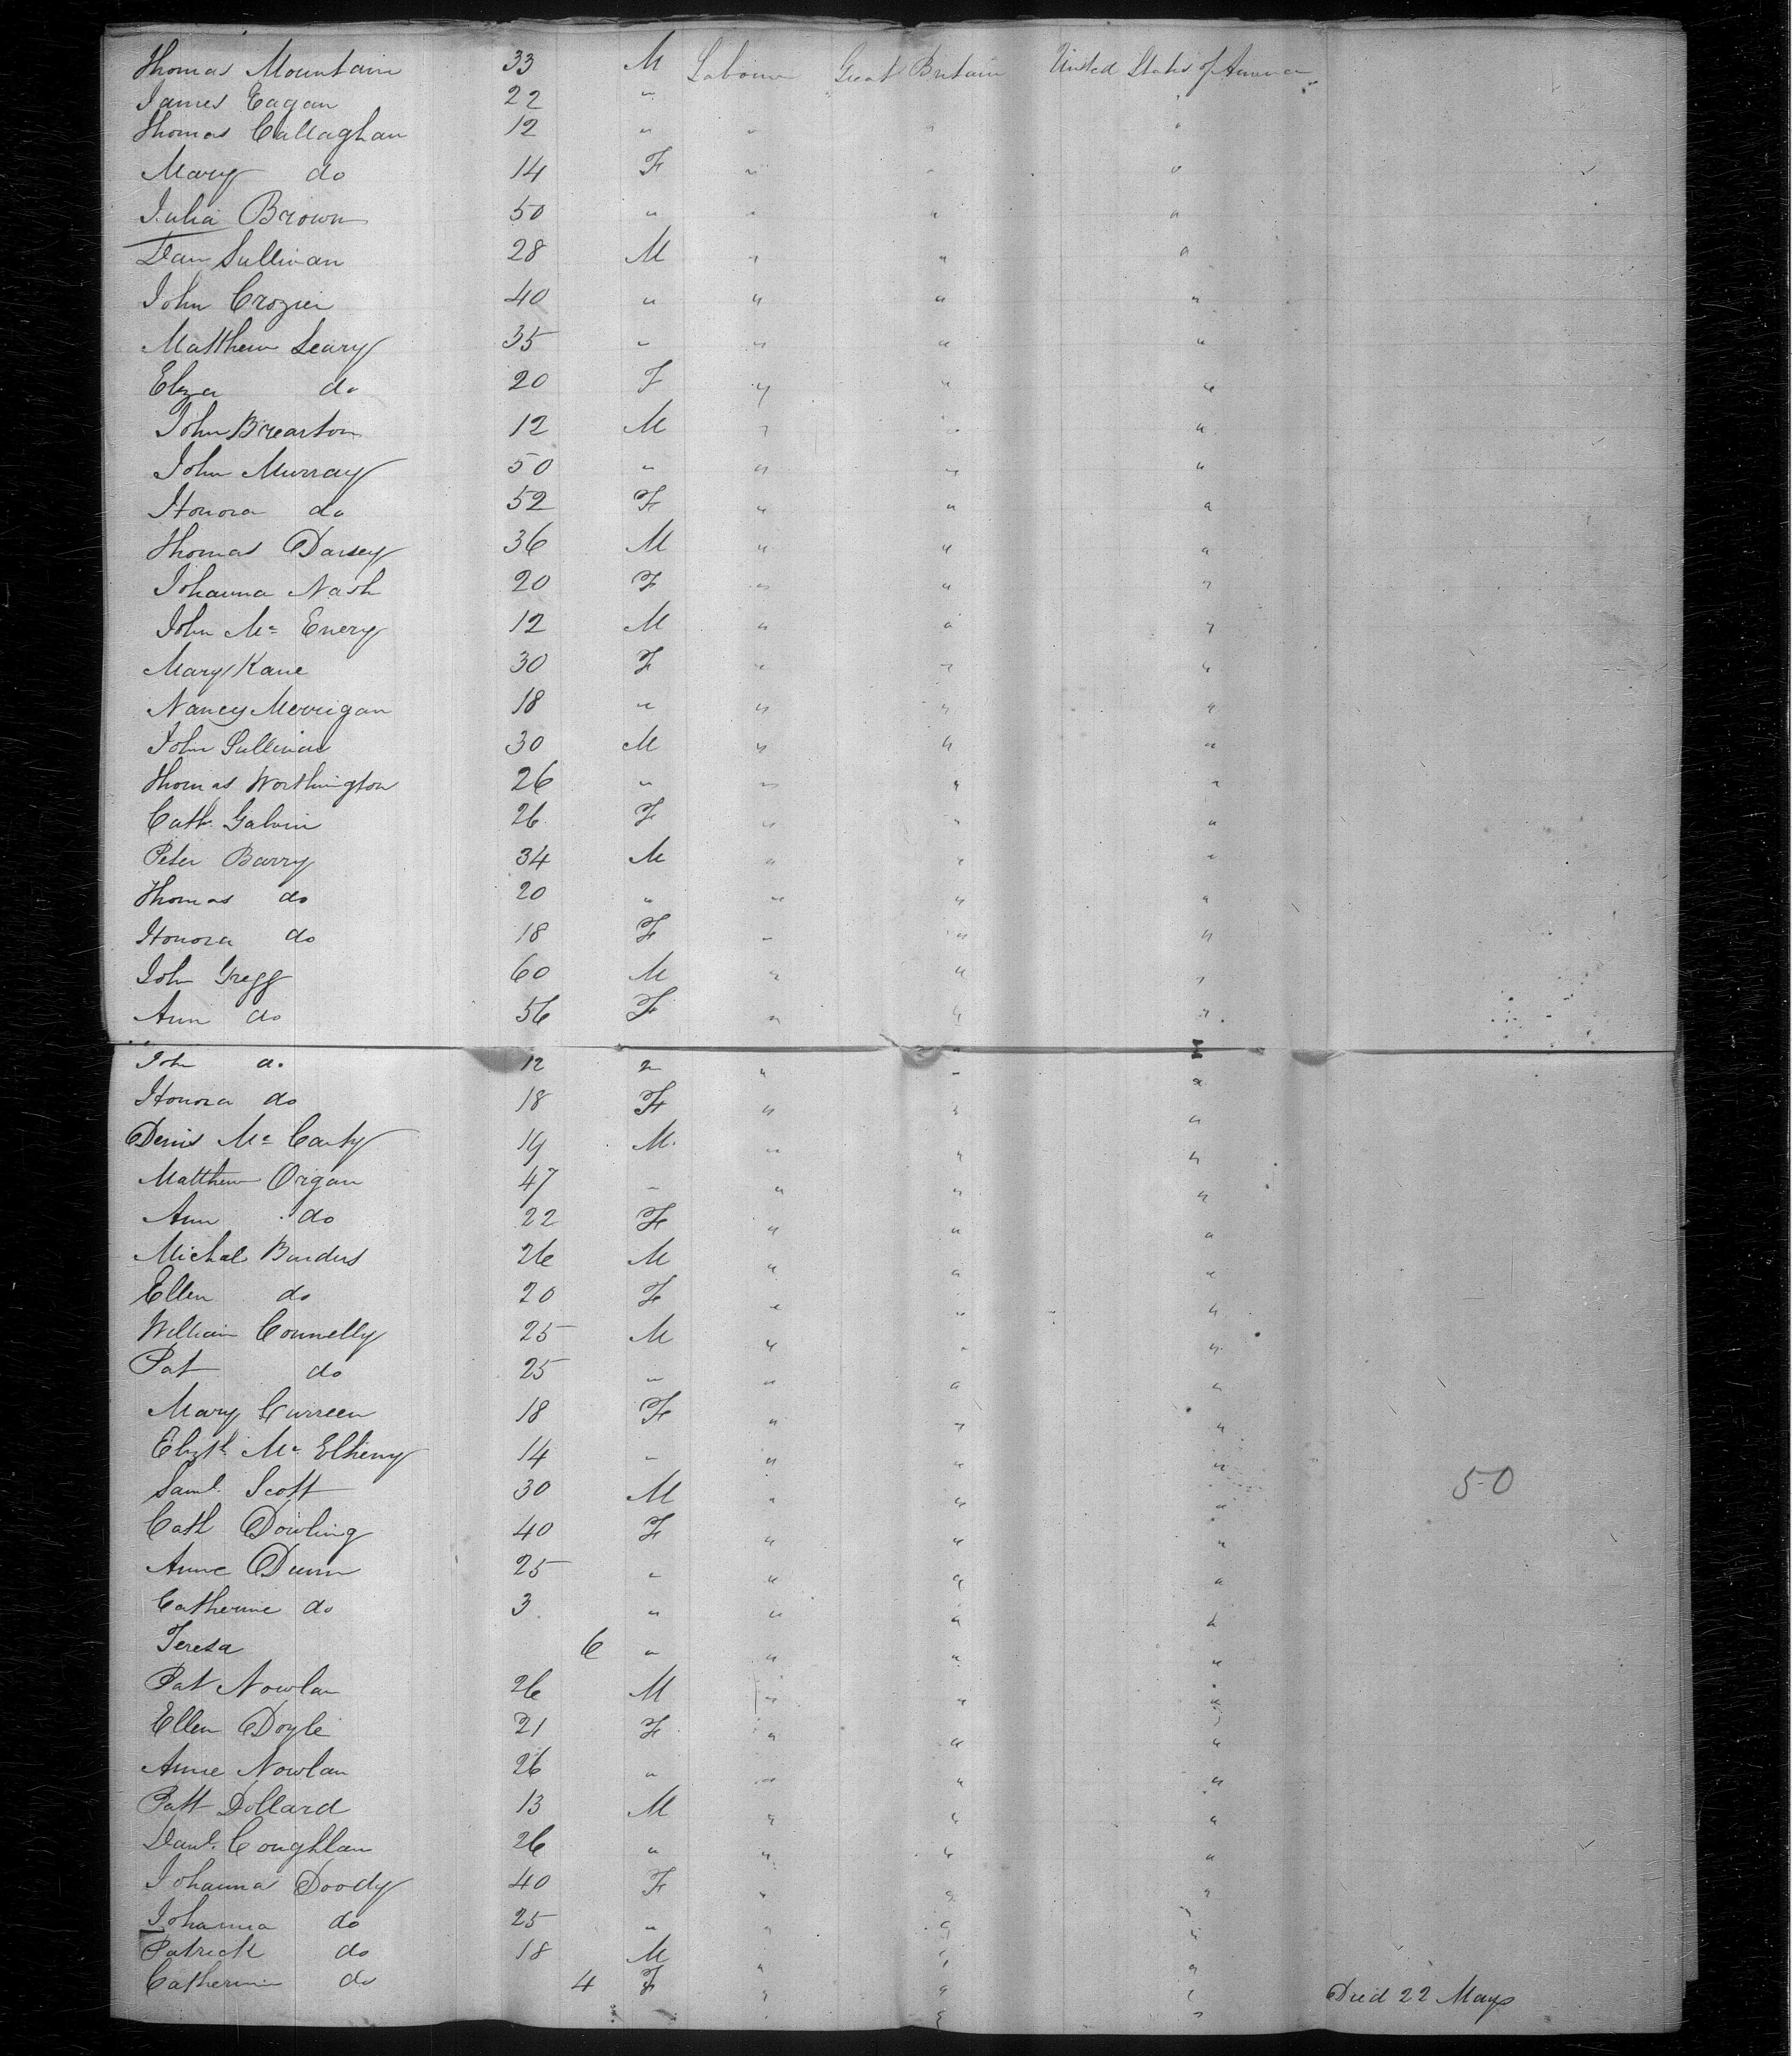 Thomas Mountain 33 M Labourer Great Britain United States of America
James Eagan 22 " "
Thomas Callaghan 12 " " " "
Mary do 14 F " " "
Julia Brown 50 " " " "
Dan Sullivan 28 M " " "
John Crozier 40 " " " "
Matthew Leary 35 " " " "
Eliza do 20 F " " "
John Brearton 12 M " " "
John Murray 50 " " " "
Honora do 52 F " " "
Thomas Darsey 36 M " " "
Johanna Nash 20 F " " "
John Mc Enery 12 M " " "
Mary Kane 30 F " " "
Nancy Merrigan 18 " " " "
John Sullivan 30 M " " "
Thomas Worthington 26 " " " "
Cath. Galvin 26 F " " "
Peter Barry 34 M " " "
Thomas do 20 " " " "
Honora do 18 F " " "
John Gregg 60 M " " "
Ann do 56 F " " "
John do 12 " " "
Honora do 18 F " " "
Denis Mc Carty 19 M " " "
Matthew Organ 47 " " " "
Ann do 22 F " " "
Michal 26 M " " "
Ellen do 20 F " " "
William Connelly 25 M " " "
Pat do 25 " " " "
Mary Curreen 18 F " " "
Elizth Mc Elheny 14 " " " "
Saml. Scott 30 M " " "
50
Cath Dowling 40 F " " "
Anne Dunn 25 " " " "
Catherine do 3 " " " "
Teresa 6 " " " "
Pat Nowlan 26 M " " "
Ellen Doyle 21 F " " "
Anne Nowlan 26 " " " "
Patt Dollard 13 M " " "
Danl. Coughlan 26 " " " "
Johanna Doody 40 F " " "
Johanna do 25 " " " "
Patrick do 18 M " " "
Catherine do 4 F " " " Died 22 May